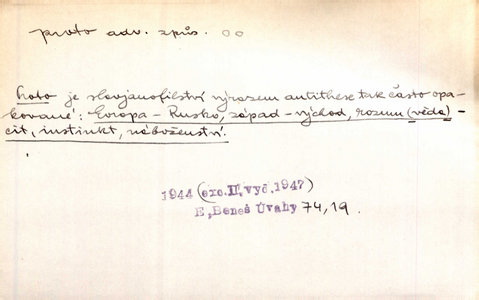 proto adv. způs. oo
Proto je slovjanofilství výrazem antithese tak často opa-
kované: Evropa - Rusko, západ - východ, rozum (věda) -
cit, instinkt, náboženství.
1944 (exc. II. vyd. 1947)
E. Beneš Úvahy 74,19.